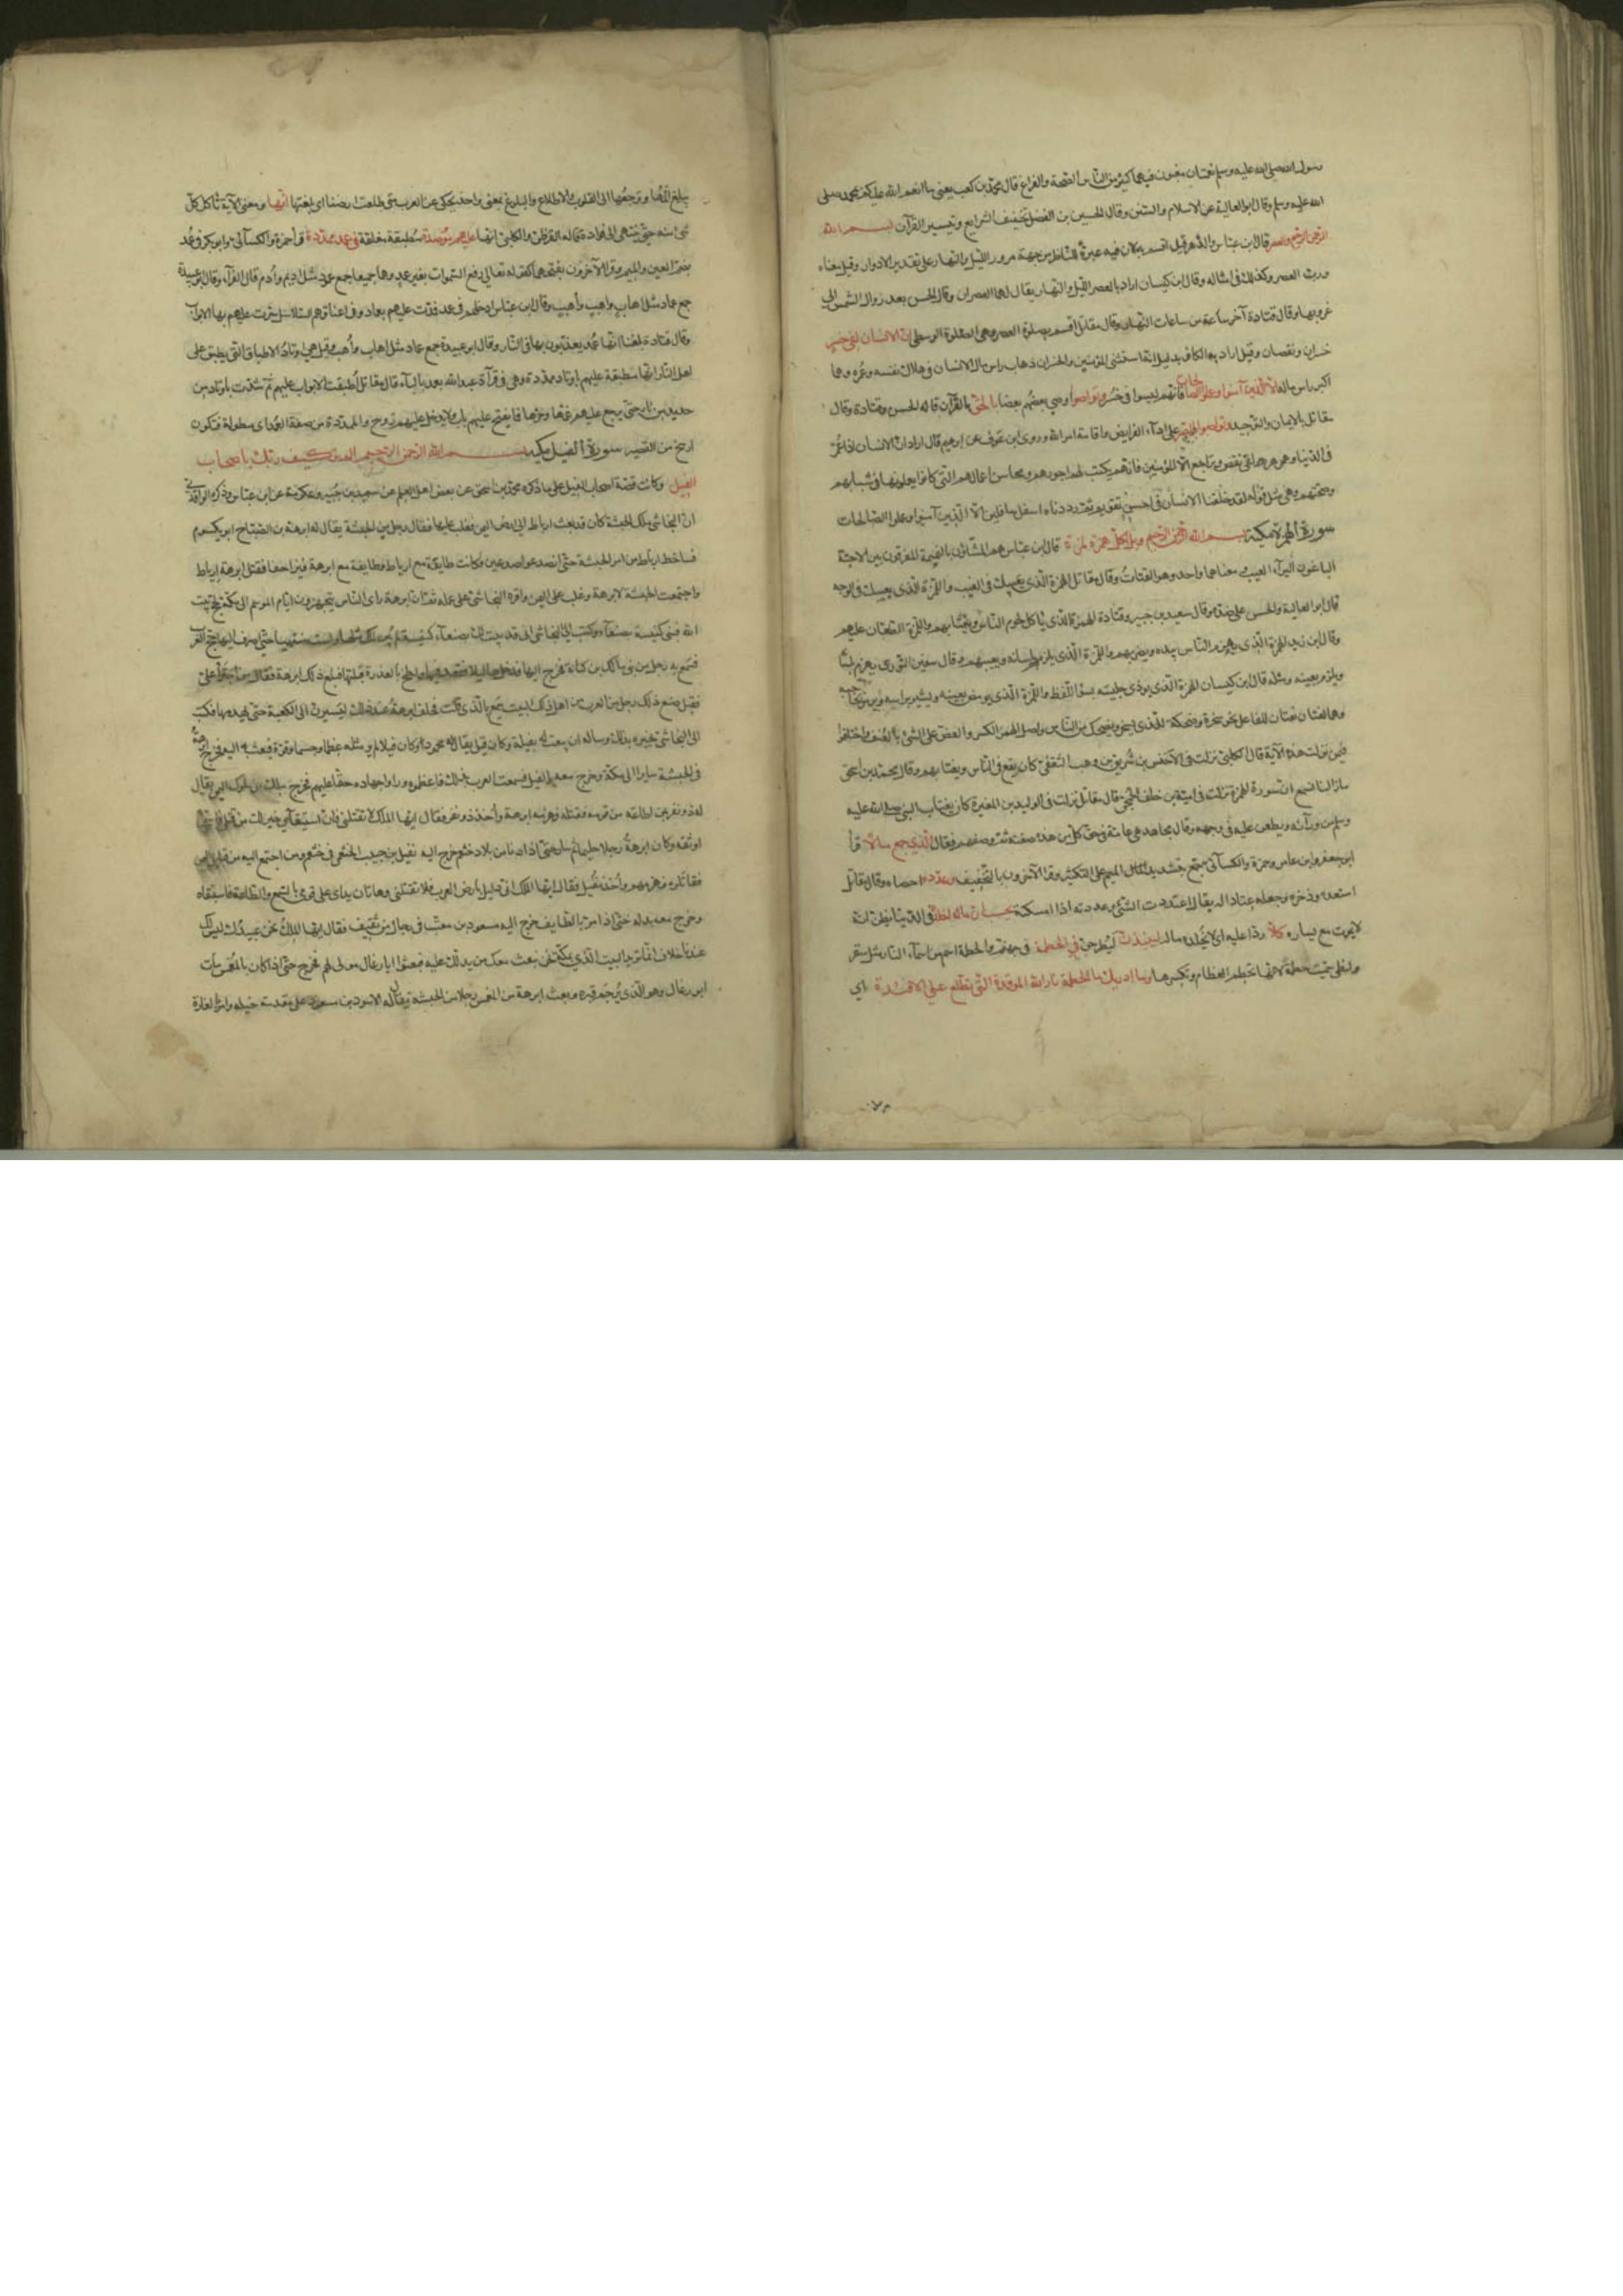 رسول الله صلى الله عليه وسلم نعمتان مغبون فيهما كثير من الناس الصحة والفراغ قال محمد بن كعب يعني بما انعم الله عليكم بمحمد صلى
الله عليه وسلم وقال ابو العالية عن الاسلام والسنن وقال الحسين بن الفضل تخفيف الشرايع وتيسير القرآن بسم الله
الرحمن الرحيم والعصر قال ابن عباس والدهر قيل اقسم به لان فيه عبرة للناظر من جهة مرور الليل والنهار على تقدير الادوار وقيل معناه
ورب العصر وكذلك في امثاله وقال ابن كيسان اراد بالعصر الليل والنهار يقال لهما العصران وقال الحسن بعد زوال الشمس الى
غروبها وقال قتادة آخر ساعة من ساعات النهار وقال مقاتل اقسم بصلوة العصر وهي الصلوة الوسطى ان الانسان لفي خسر
خسران ونقصان وقيل اراد به الكافر بدليل انه استثنى المؤمنين والخسران ذهاب راس مال الانسان في هلاك نفسه وعمره وهما
اكبر راس ماله الا الذين آمنوا وعملوا الصالحات فانهم ليسوا في خسر وتواصوا اوصي بعضهم بعضا بالحق بالقرآن قاله الحسن وقتادة وقال
مقاتل بالايمان والتوحيد وتواصوا بالصبر على اداء الفرايض واقامة امر الله وروى ابن عوف عن ابرهيم قال اراد ان الانسان اذا عمر
في الدنيا وهرم لفي نقص وتراجع الا المؤمنين فانهم يكتب لهم اجورهم ومحاسن اعمالهم التي كانوا يعملونها في شبابهم
وصحتهم وهي مثل قوله لقد خلقنا الانسان في احسن تقويم ثم رددناه اسفل سافلين الا الذين آمنوا وعملوا الصالحات
سورة الهمزة مكية بسم الله الرحمن الرحيم ويل لكل همزة لمزة قال ابن عباس هم المشاؤن بالنميمة المفرقون بين الاحبة
الباغون للبرآء العيب ومعناهما واحد وهو العياب وقال مقاتل الهمزة الذي يعيبك في الغيب واللمزة الذي يعيبك في الوجه
قال ابو العالية والحسن على ضده وقال سعيد بن جبير وقتادة الهمزة الذي ياكل لحوم الناس ويغتابهم واللمزة الطعان عليهم
وقال ابن زيد الهمزة الذي يهمز الناس بيده ويضربهم واللمزة الذي يلمزهم بلسانه ويعيبهم وقال سفين الثوري يهمز بلسانه
ويلمز بعينه ومثله قال ابن كيسان الهمزة الذي يوذي جليسه بسوء اللفظ واللمزة الذي يومض بعينه ويشير براسه ويرمز بحاجبه
وهما نعتان للفاعل نحو سخرة وضحكة للذي يسخر ويضحك من الناس واصل الهمز الكسر والعض على الشيء بالعنف واختلفوا
فيمن نزلت هذه الآية قال الكلبي نزلت في الاخنس بن شريق بن وهب الثقفي كان يقع في الناس ويغتابهم وقال محمد بن اسحق
ما زلنا نسمع ان سورة الهمزة نزلت في امية بن خلف الجمحي وقال مقاتل نزلت في الوليد بن المغيرة كان يغتاب النبي صلى الله عليه
وسلم من ورآئه ويطعن عليه في وجهه وقال مجاهد هي عامة في حق كل من هذه صفته ثم وصفهم فقال الذي جمع مالا قرأ
ابو جعفر وابن عامر وحمزة والكسآئي جمع بتشديد الميم على التكثير وقرأ الآخرون بالتخفيف وعدده احصاه وقال مقاتل
استعده وذخره وجعله عتادا له يقال اعددت الشيء وعددته اذا امسكته يحسب ان ماله اخلده في الدنيا يظن انه
لا يموت مع يساره كلا ردا عليه اي لا يخلده ماله لينبذن ليطرحن في الحطمة في جهنم والحطمة اسم من اسمآء النار مثل سقر
ولظى سميت حطمة لانها تحطم العظام وتكسرها وما ادريك ما الحطمة نار الله الموقدة التي تطلع على الافئدة اي
يبلغ المها ووجعها الى القلوب والاطلاع والبلوغ بمعنى واحد يحكى عن العرب متى طلعت ارضنا اى بلغتها انها ومعنى الآية تاكل كل
شي منه حتى ينتهي الى فؤاده قاله القرظي والكلبي انها عليهم مؤصدة مطبقة مغلقة في عمد ممددة قرأ حمزة والكسآئي وابو بكر في عُمُد
بضم العين والميم وقرأ الآخرون بفتحهما كقوله تعالى رفع السموات بغير عمد وهما جميعا جمع عمود مثل اديم وأدم قال الفرآء وقال ابو عبيدة
جمع عماد مثل اهاب واهب وأهب وقال ابن عباس ادخلهم في عمد فمدت عليهم بعماد وفي اعناقهم السلاسل سدت عليهم بها الابواب
وقال قتادة بلغنا انها عمد يعذبون بها في النار وقال ابو عبيدة جمع عماد مثل اهاب وأهب وقيل هي اوتاد الاطباق التي يطبق على
اهل النار انها مطبقة عليهم باوتاد ممددة وهي في قرآءة عبد الله بعمد بالبآء قال مقاتل أطبقت الابواب عليهم ثم شدت باوتاد من
حديد من نار حتى يرجع عليهم غمها وحرها فلا يفتح عليهم باب ولا يدخل عليهم روح والممددة من صفة العمد اي مطولة فتكون
ارسخ من القصير سورة الفيل مكية بسم الله الرحمن الرحيم الم تر كيف ربك باصحاب
الفيل وكانت قصة اصحاب الفيل على ما ذكره محمد بن اسحق عن بعض اهل العلم عن سعيد بن جبير وعكرمة عن ابن عباس وذكره الواقدي
ان النجاشي ملك الحبشة كان قد بعث ارياط الى ارض اليمن فغلب عليها فقام رجل من الحبشة يقال له ابرهة بن الصباح ابو يكسوم
فساخط ارياط من امر الحبشة حتى انصدعوا صدعين وكانت طايفة مع ارياط وطايفة مع ابرهة فتزاحفا فقتل ابرهة ارياط
واجتمعت الحبشة لابرهة وغلب على اليمن واقره النجاشي على عمله ثم ان ابرهة راى الناس يتجهزون ايام الموسم الى مكة لحج بيت
الله فبنى كنيسة بصنعآء وكتب الى النجاشي انى قد بنيت لك بصنعآء كنيسة لم يبن لملك مثلها ولست منتهيا حتى اصرف اليها حج العرب
فسمع به رجل من بني مالك بن كنانة فخرج اليها فدخلها ليلا ولطخ بالعذرة قبلتها فبلغ ذلك ابرهة فقال من اجترأ على
فقيل صنع ذلك رجل من العرب من اهل ذلك البيت سمع بالذي قلت فحلف ابرهة عند ذلك ليسيرن الى الكعبة حتى يهدمها فكتب
الى النجاشي يخبره بذلك وساله ان يبعث اليه بفيله وكان فيل يقال له محمود وكان فيلا لم ير مثله عظما وجسما وقوة فبعث به اليه فخرج ابرهة
في الحبشة سايرا الى مكة وخرج معه بالفيل فسمعت العرب بذلك فاعظموه وراوا جهاده حقا عليهم فخرج ملك من ملوك اليمن يقال
له ذو نفر بمن اطاعه من قومه فقاتله فهزمه ابرهة وأخذ ذو نفر فقال ايها الملك لا تقتلني فان استبقآئي خير لك من قتلي فاستحيا
اوثقه وكان ابرهة رجلا حليما ثم سار حتى اذا دنا من بلاد خثعم خرج اليه نفيل بن حبيب الخثعمي في خثعم ومن اجتمع اليه من قبايل اليمن
فقاتلوه فهزمهم وأخذ نفيل فقال ايها الملك اني دليل بارض العرب فلا تقتلني وهاتان يداى على قومي بالسمع والطاعة فاستبقاه
وخرج معه يدله حتى اذا مر بالطايف خرج اليه مسعود بن معتب في رجال من ثقيف فقال ايها الملك نحن عبيدك ليس لك
عندنا خلاف انما تريد البيت الذي بمكة نحن نبعث معك من يدلك عليه فبعثوا ابا رغال مولى لهم فخرج حتى اذا كان بالمغمس مات
ابو رغال وهو الذي يرجم قبره وبعث ابرهة من المغمس رجلا من الحبشة يقال له الاسود بن مسعود على مقدمة خيله وامره بالغارة